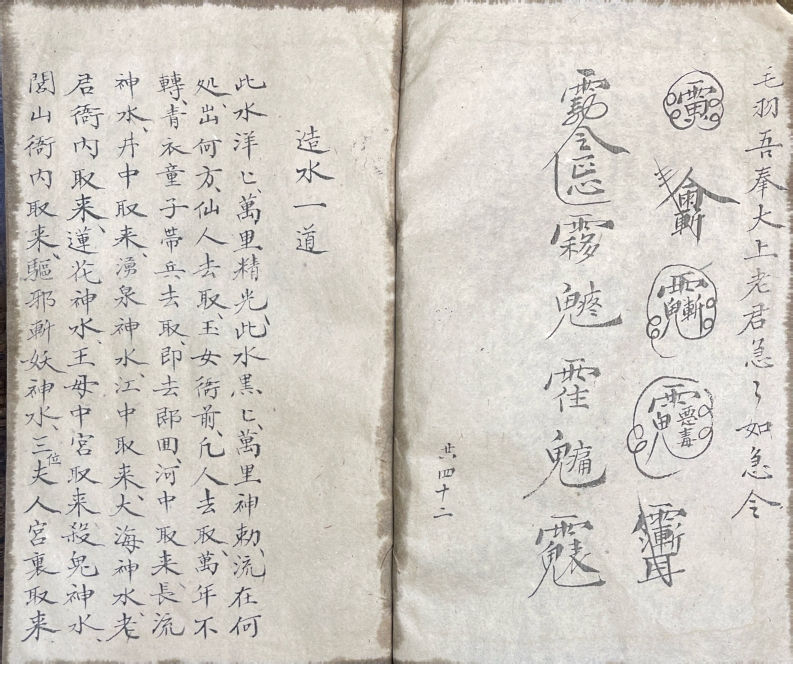 毛羽吾奉大上老君急〻如急令
共四十二
造水一道
此水洋匕、萬里精光、此水黑匕、萬里神勅、流在何
处、出何方、仙人去取、玉女衙前、凡人去取、萬年不
轉、青衣童子帶兵去取、即去即囬、河中取来、長流
神水、井中取来、湧泉神水、江中取来、大海神水、老
君衙内取来、蓮花神水、王母中宮取来、殺鬼神水、
閭山衙内取来、驅邪斬妖神水、三位夫人宮裏取来